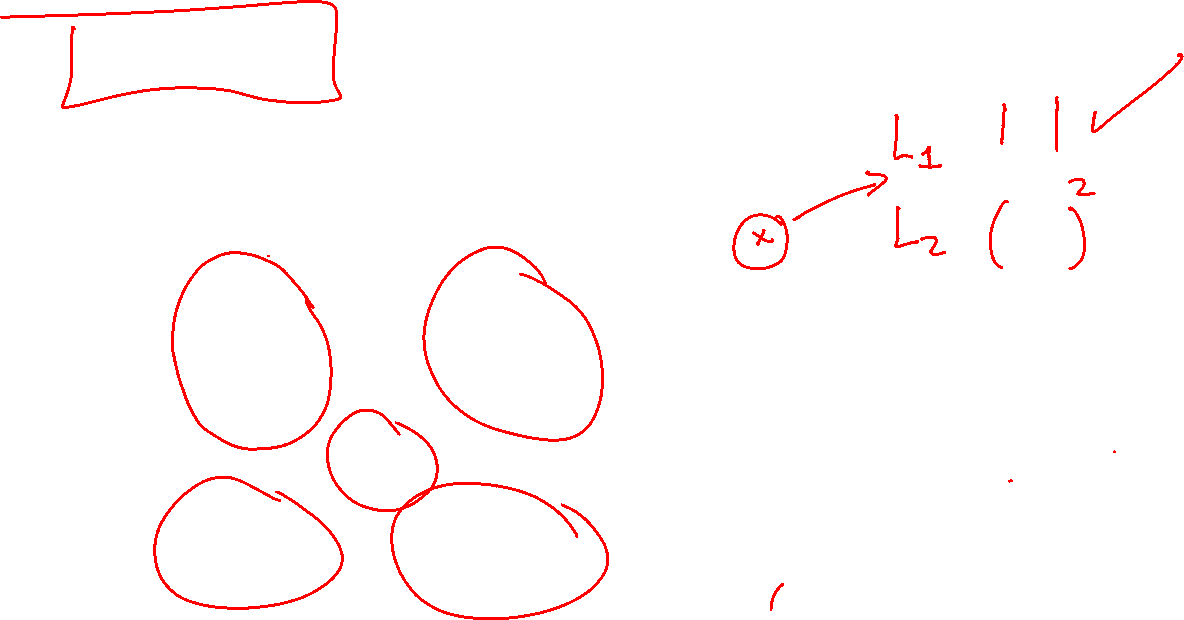 L1 | |
x
L2 ( )²